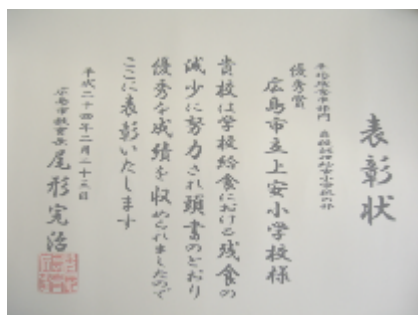 表彰状
優秀賞
広島市立上安小学校様
貴校は学校給食における残食の
減少に努力され頭書のとおり
優秀な成績を収められましたので
ここに表彰いたします
平成二十四年二月二十三日
広島市教育長 尾形完治